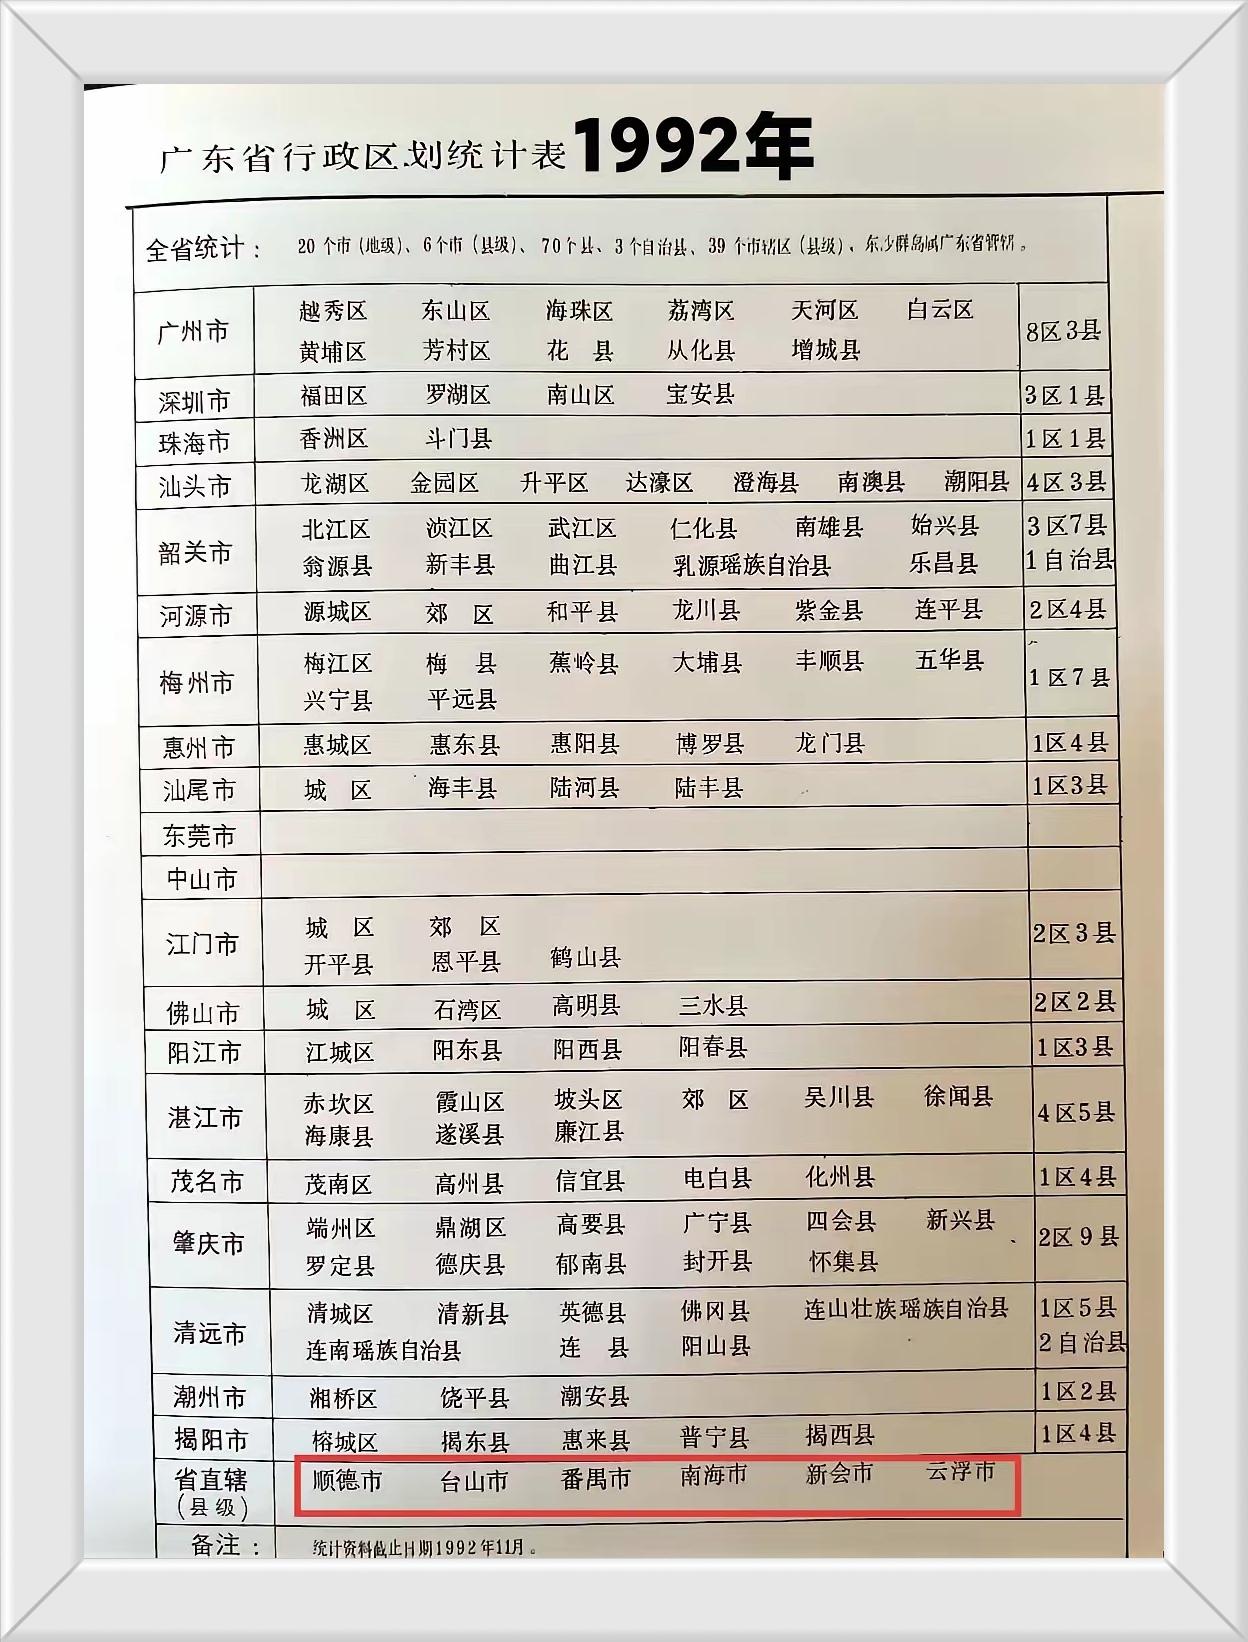 广东省行政区划统计表1992年
全省统计： 20个市(地级)、6个市(县级)、70个县、3个自治县、39个市辖区(县级)、东沙群岛属广东省管辖。
广州市 越秀区 东山区 海珠区 荔湾区 天河区 白云区 8区3县
黄埔区 芳村区 花 县 从化县 增城县
深圳市 福田区 罗湖区 南山区 宝安县 3区1县
珠海市 香洲区 斗门县 1区1县
汕头市 龙湖区 金园区 升平区 达濠区 澄海县 南澳县 潮阳县 4区3县
韶关市 北江区 浈江区 武江区 仁化县 南雄县 始兴县 3区7县
翁源县 新丰县 曲江县 乳源瑶族自治县 乐昌县 1自治县
河源市 源城区 郊 区 和平县 龙川县 紫金县 连平县 2区4县
梅州市 梅江区 梅 县 蕉岭县 大埔县 丰顺县 五华县 1区7县
兴宁县 平远县
惠州市 惠城区 惠东县 惠阳县 博罗县 龙门县 1区4县
汕尾市 城 区 海丰县 陆河县 陆丰县 1区3县
东莞市
中山市
江门市 城 区 郊 区 2区3县
开平县 恩平县 鹤山县
佛山市 城 区 石湾区 高明县 三水县 2区2县
阳江市 江城区 阳东县 阳西县 阳春县 1区3县
湛江市 赤坎区 霞山区 坡头区 郊 区 吴川县 徐闻县 4区5县
海康县 遂溪县 廉江县
茂名市 茂南区 高州县 信宜县 电白县 化州县 1区4县
肇庆市 端州区 鼎湖区 高要县 广宁县 四会县 新兴县 2区9县
罗定县 德庆县 郁南县 封开县 怀集县
清远市 清城区 清新县 英德县 佛冈县 连山壮族瑶族自治县 1区5县
连南瑶族自治县 连 县 阳山县 2自治县
潮州市 湘桥区 饶平县 潮安县 1区2县
揭阳市 榕城区 揭东县 惠来县 普宁县 揭西县 1区4县
省直辖 顺德市 台山市 番禺市 南海市 新会市 云浮市
(县级)
备注： 统计资料截止日期1992年11月。